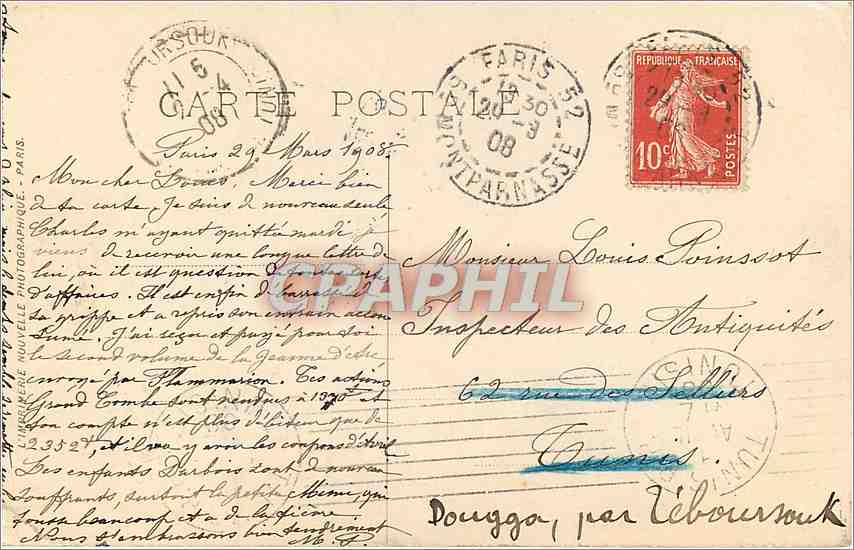 CARTE POSTALE
PARIS 52
12 30
20 -3
08
R. MONTPARNASSE
REPUBLIQUE FRANÇAISE
10 c
POSTES
11 5
5 4
08
Paris 29 Mars 1908
Mon cher Louis, Merci bien
de ta carte. Je suis de nouveau seule,
Charles m'ayant quittée mardi je
viens de recevoir une longue lettre de
lui, où il est question de toutes sortes
d'affaires. Il est enfin débarrassé de
sa grippe et a repris son entrain accou
tumé. J'ai reçu et payé pour toi
le second volume de la Jeanne d'Arc
envoyé par Flammarion. Tes actions
Grand Combe sont vendues à et
son compte n'est plus débiteur que de
2352 et il va y avoir les coupons d'Avril
Les enfants Darbois sont de nouveau
souffrants, surtout la petite Mimie, qui
tousse beaucoup et a de la fièvre.
Nous t'embrassons bien tendrement
M. P.
Monsieur Louis Poinssot
Inspecteur des Antiquités
62 rue des Selliers
Tunis.
Dougga, par Téboursouk
TUNIS
L'IMPRIMERIE NOUVELLE PHOTOGRAPHIQUE. - PARIS.
CPAPHIL